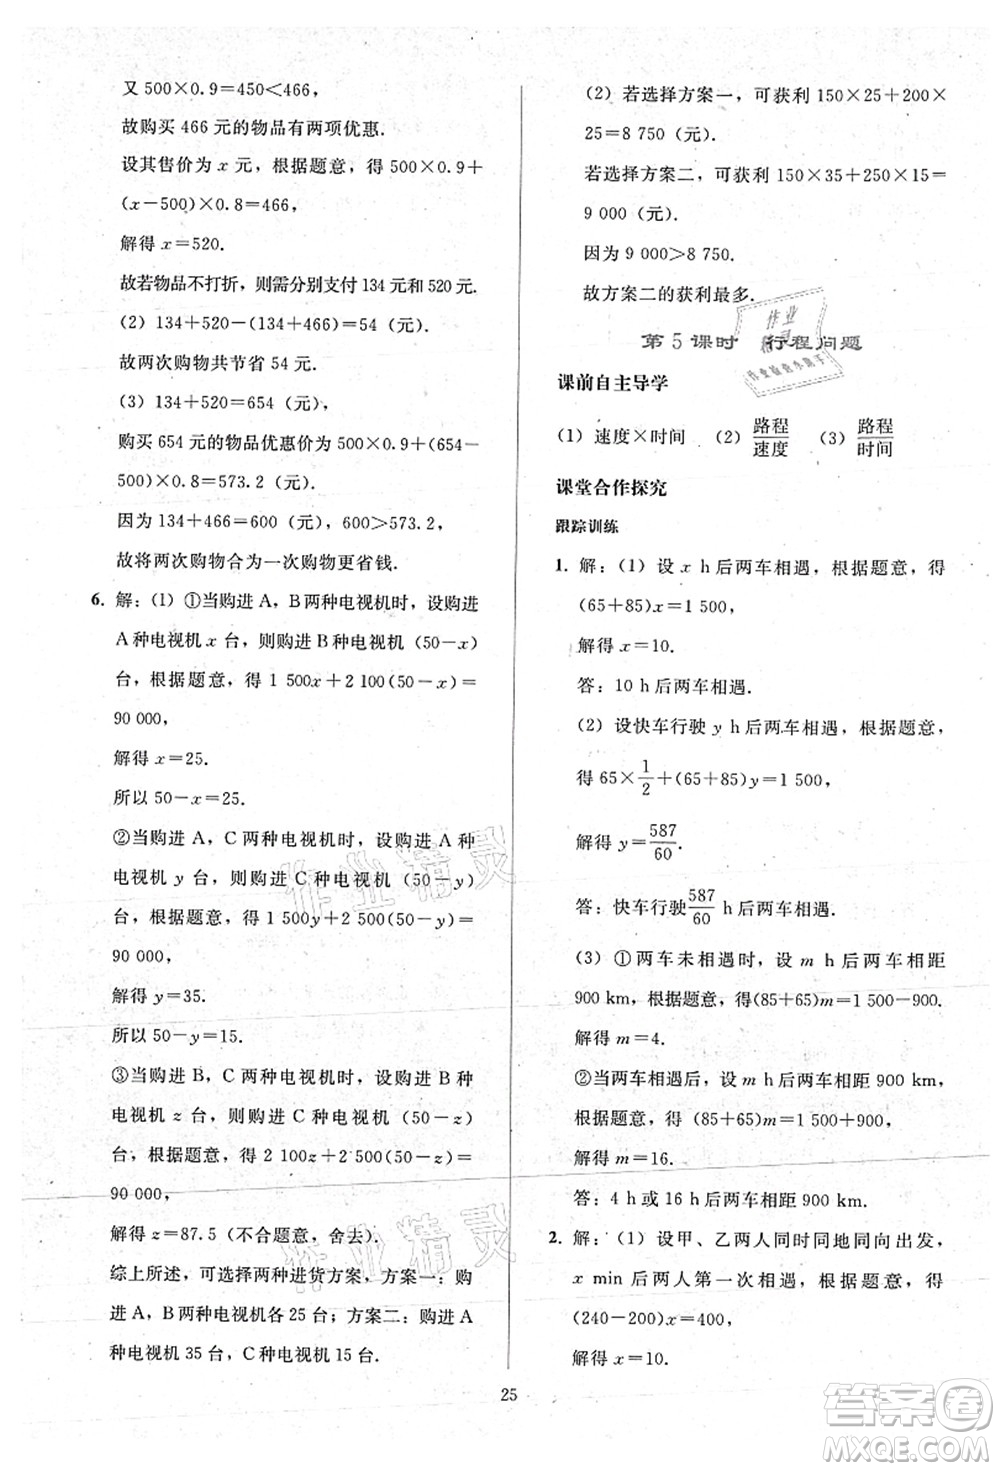 又 500×0.9=450<466,
故购买 466 元的物品有两项优惠.
设其售价为 x 元，根据题意，得 500×0.9+
(x-500)×0.8=466,
解得 x=520.
故若物品不打折，需分别支付 134 元和 520 元.
(2) 134+520-(134+466)=54（元）.
故两次购物共节省 54 元.
(3) 134+520=654（元）.
购买 654 元的物品优惠价为 500×0.9+(654-
500)×0.8=573.2（元）.
因为 134+466=600（元），600>573.2,
故将两次购物合为一次购物更省钱.
6. 解：(1) ①当购进 A，B 两种电视机时，设购进
A 种电视机 x 台，则购进 B 种电视机 (50-x)
台，根据题意，得 1 500x+2 100(50-x)=
90 000,
解得 x=25.
所以 50-x=25.
②当购进 A，C 两种电视机时，设购进 A 种
电视机 y 台，则购进 C 种电视机 (50-y)
台，根据题意，得 1 500y+2 500(50-y)=
90 000,
解得 y=35.
所以 50-y=15.
③当购进 B，C 两种电视机时，设购进 B 种
电视机 z 台，则购进 C 种电视机 (50-z)
台，根据题意，得 2 100z+2 500(50-z)=
90 000,
解得 z=87.5（不合题意，舍去）.
综上所述，可选择两种进货方案，方案一：购
进 A，B 两种电视机各 25 台；方案二：购进 A
种电视机 35 台，C 种电视机 15 台.
(2) 若选择方案一，可获利 150×25+200×
25=8 750（元）.
若选择方案二，可获利 150×35+250×15=
9 000（元）.
因为 9 000>8 750.
故方案二的获利最多.
第 5 课时 行程问题
课前自主导学
(1) 速度×时间 (2) 路程/速度 (3) 路程/时间
课堂合作探究
跟踪训练
1. 解：(1) 设 x h 后两车相遇，根据题意，得
(65+85)x=1 500,
解得 x=10.
答：10 h 后两车相遇.
(2) 设快车行驶 y h 后两车相遇，根据题意，
得 65×1/2+(65+85)y=1 500,
解得 y=587/60.
答：快车行驶 587/60 h 后两车相遇.
(3) ①两车未相遇，设 m h 后两车相距
900 km，根据题意，得(85+65)m=1 500-900.
解得 m=4.
②当两车相遇后，设 m h 后两车相距 900 km，
根据题意，得 (85+65)m=1 500+900,
解得 m=16.
答：4 h 或 16 h 后两车相距 900 km.
2. 解：(1) 设甲、乙两人同时同地同向出发，
x min 后两人第一次相遇，根据题意，得
(240-200)x=400,
解得 x=10.
25
作业精灵
作业精灵
答案卷
MXQE.COM